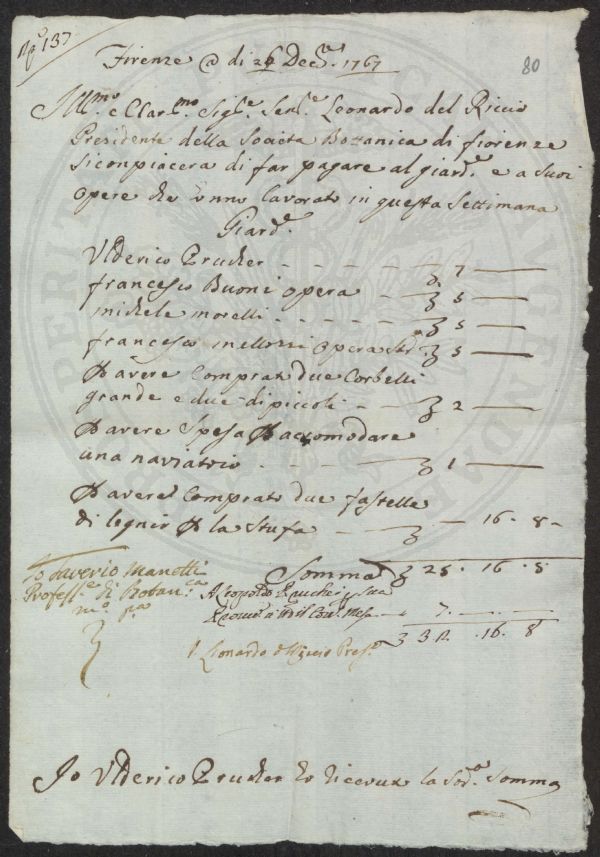 N.º 137
80
Firenze @ di 26 Dec.re 1767
Ill.mo e Clar.mo Sig.re Sen.re Leonardo del Riccio
Presidente della Società Bottanica di fiorenze
Si conpiacera di far pagare al giard.e e a Suoi
opere che ònno lavorato in questa Settimana
Giard.e
Ulderico Prucker - - - - - 7 —
francesco Buoni opera - - 5 —
michele morelli - - - - 5 —
francesco mellozzi opera 5 —
P avere Comprato due Corbelli
grande e due di piccoli - - 2 —
P avere Spesa P accomodare
una naviatoio - - - 1 —
P avere Comprato due fastella
di legnie P la Stufa - - 16 . 8 -
Somma 25 . 16 . 8
Io Saverio Manetti
Profess.e di Botan.ca
m.o p.a
A Leopoldo Prucher
7 . — . —
32 . 16 . 8
Leonardo del Riccio Pres.e
Io Ulderico Prucker ho ricevuto la Sod.a Somma